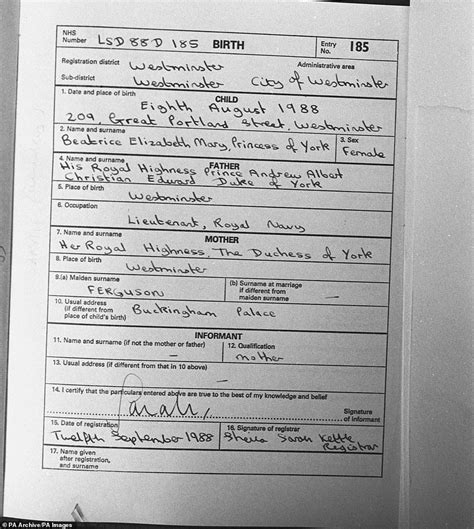 NHS Number LSD 88D 185 BIRTH Entry No. 185
Registration district Westminster Administrative area
Sub-district Westminster City of Westminster
CHILD
1. Date and place of birth
Eighth August 1988
209, Great Portland Street, Westminster
2. Name and surname 3. Sex
Beatrice Elizabeth Mary, Princess of York Female
FATHER
4. Name and surname
His Royal Highness Prince Andrew Albert
Christian Edward Duke of York
5. Place of birth
Westminster
6. Occupation
Lieutenant, Royal Navy
MOTHER
7. Name and surname
Her Royal Highness, The Duchess of York
8. Place of birth
Westminster
9.(a) Maiden surname (b) Surname at marriage
if different from
maiden surname —
FERGUSON
10. Usual address
(if different from
place of child's birth) Buckingham Palace
INFORMANT
11. Name and surname (if not the mother or father) 12. Qualification
— mother
13. Usual address (if different from that in 10 above)
—
14. I certify that the particulars entered above are true to the best of my knowledge and belief
Sarah, Signature
of informant
15. Date of registration 16. Signature of registrar
Twelfth September 1988 Sheila Sarah Kettle
Registrar
17. Name given
after registration,
and surname
© PA Archive/PA Images